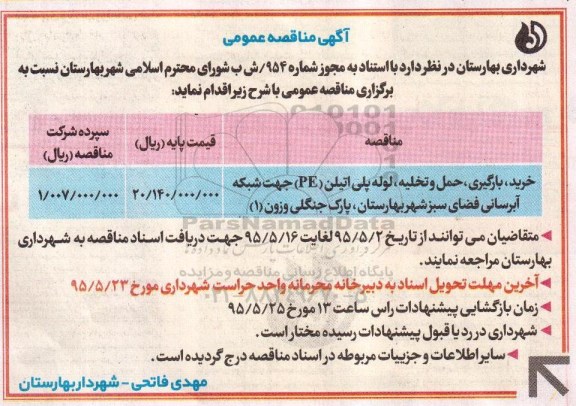 آگهی مناقصه عمومی
شهرداری بهارستان در نظر دارد با استناد به مجوز شماره ۹۵۴/ش ب شورای محترم اسلامی شهر بهارستان نسبت به
برگزاری مناقصه عمومی با شرح زیر اقدام نماید:
مناقصه
قیمت پایه (ریال)
سپرده شرکت
مناقصه (ریال)
خرید، بارگیری، حمل و تخلیه، لوله پلی اتیلن (PE) جهت شبکه
آبرسانی فضای سبز شهر بهارستان، پارک جنگلی وزون (۱)
۲۰/۱۴۰/۰۰۰/۰۰۰
۱/۰۰۷/۰۰۰/۰۰۰
متقاضیان می توانند از تاریخ ۹۵/۵/۲ لغایت ۹۵/۵/۱۶ جهت دریافت اسناد مناقصه به شهرداری
بهارستان مراجعه نمایند.
آخرین مهلت تحویل اسناد به دبیرخانه محرمانه واحد حراست شهرداری مورخ ۹۵/۵/۲۳
زمان بازگشایی پیشنهادات راس ساعت ۱۳ مورخ ۹۵/۵/۲۵
شهرداری در رد یا قبول پیشنهادات رسیده مختار است.
سایر اطلاعات و جزییات مربوطه در اسناد مناقصه درج گردیده است.
مهدی فاتحی - شهردار بهارستان
ParsNamadData
پایگاه اطلاع رسانی مناقصه و مزایده